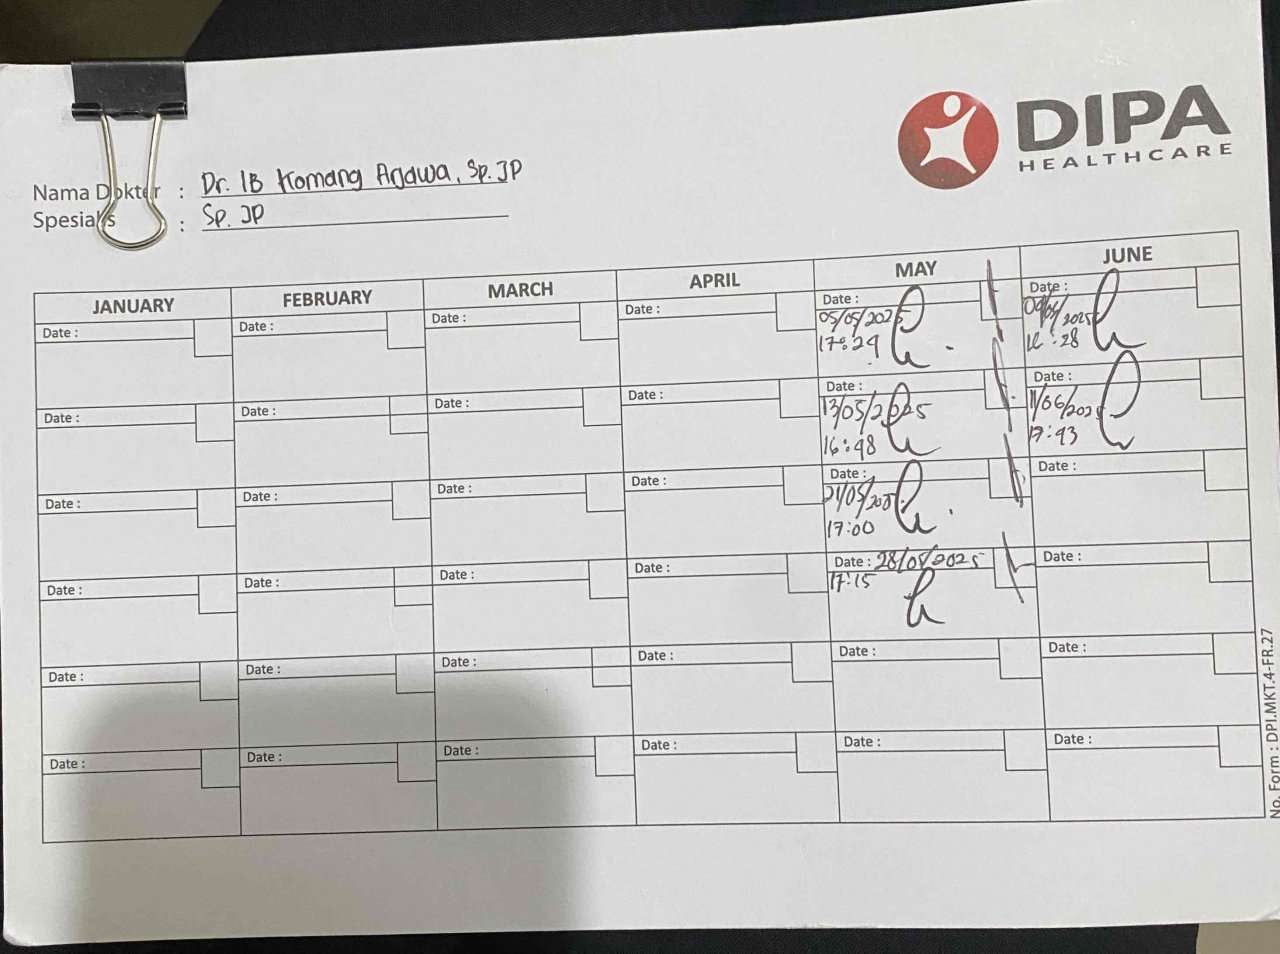 DIPA
HEALTHCARE
Nama Dokter : Dr. IB Komang Arjawa, Sp. JP
Spesialis : Sp. JP
JANUARY FEBRUARY MARCH APRIL MAY JUNE
Date : Date : Date : Date : Date : Date :
05/05/2025 09/06/2025
17:29 :28
Date : Date : Date : Date : Date : Date :
13/05/2025 11/06/2025
16:48 17:43
Date : Date : Date : Date : Date : Date :
21/05/
17:00
Date : Date : Date : Date : Date : 28/05/2025 Date :
17:15
Date : Date : Date : Date : Date : Date :
Date : Date : Date : Date : Date : Date :
No. Form : DPI.MKT.4-FR.27